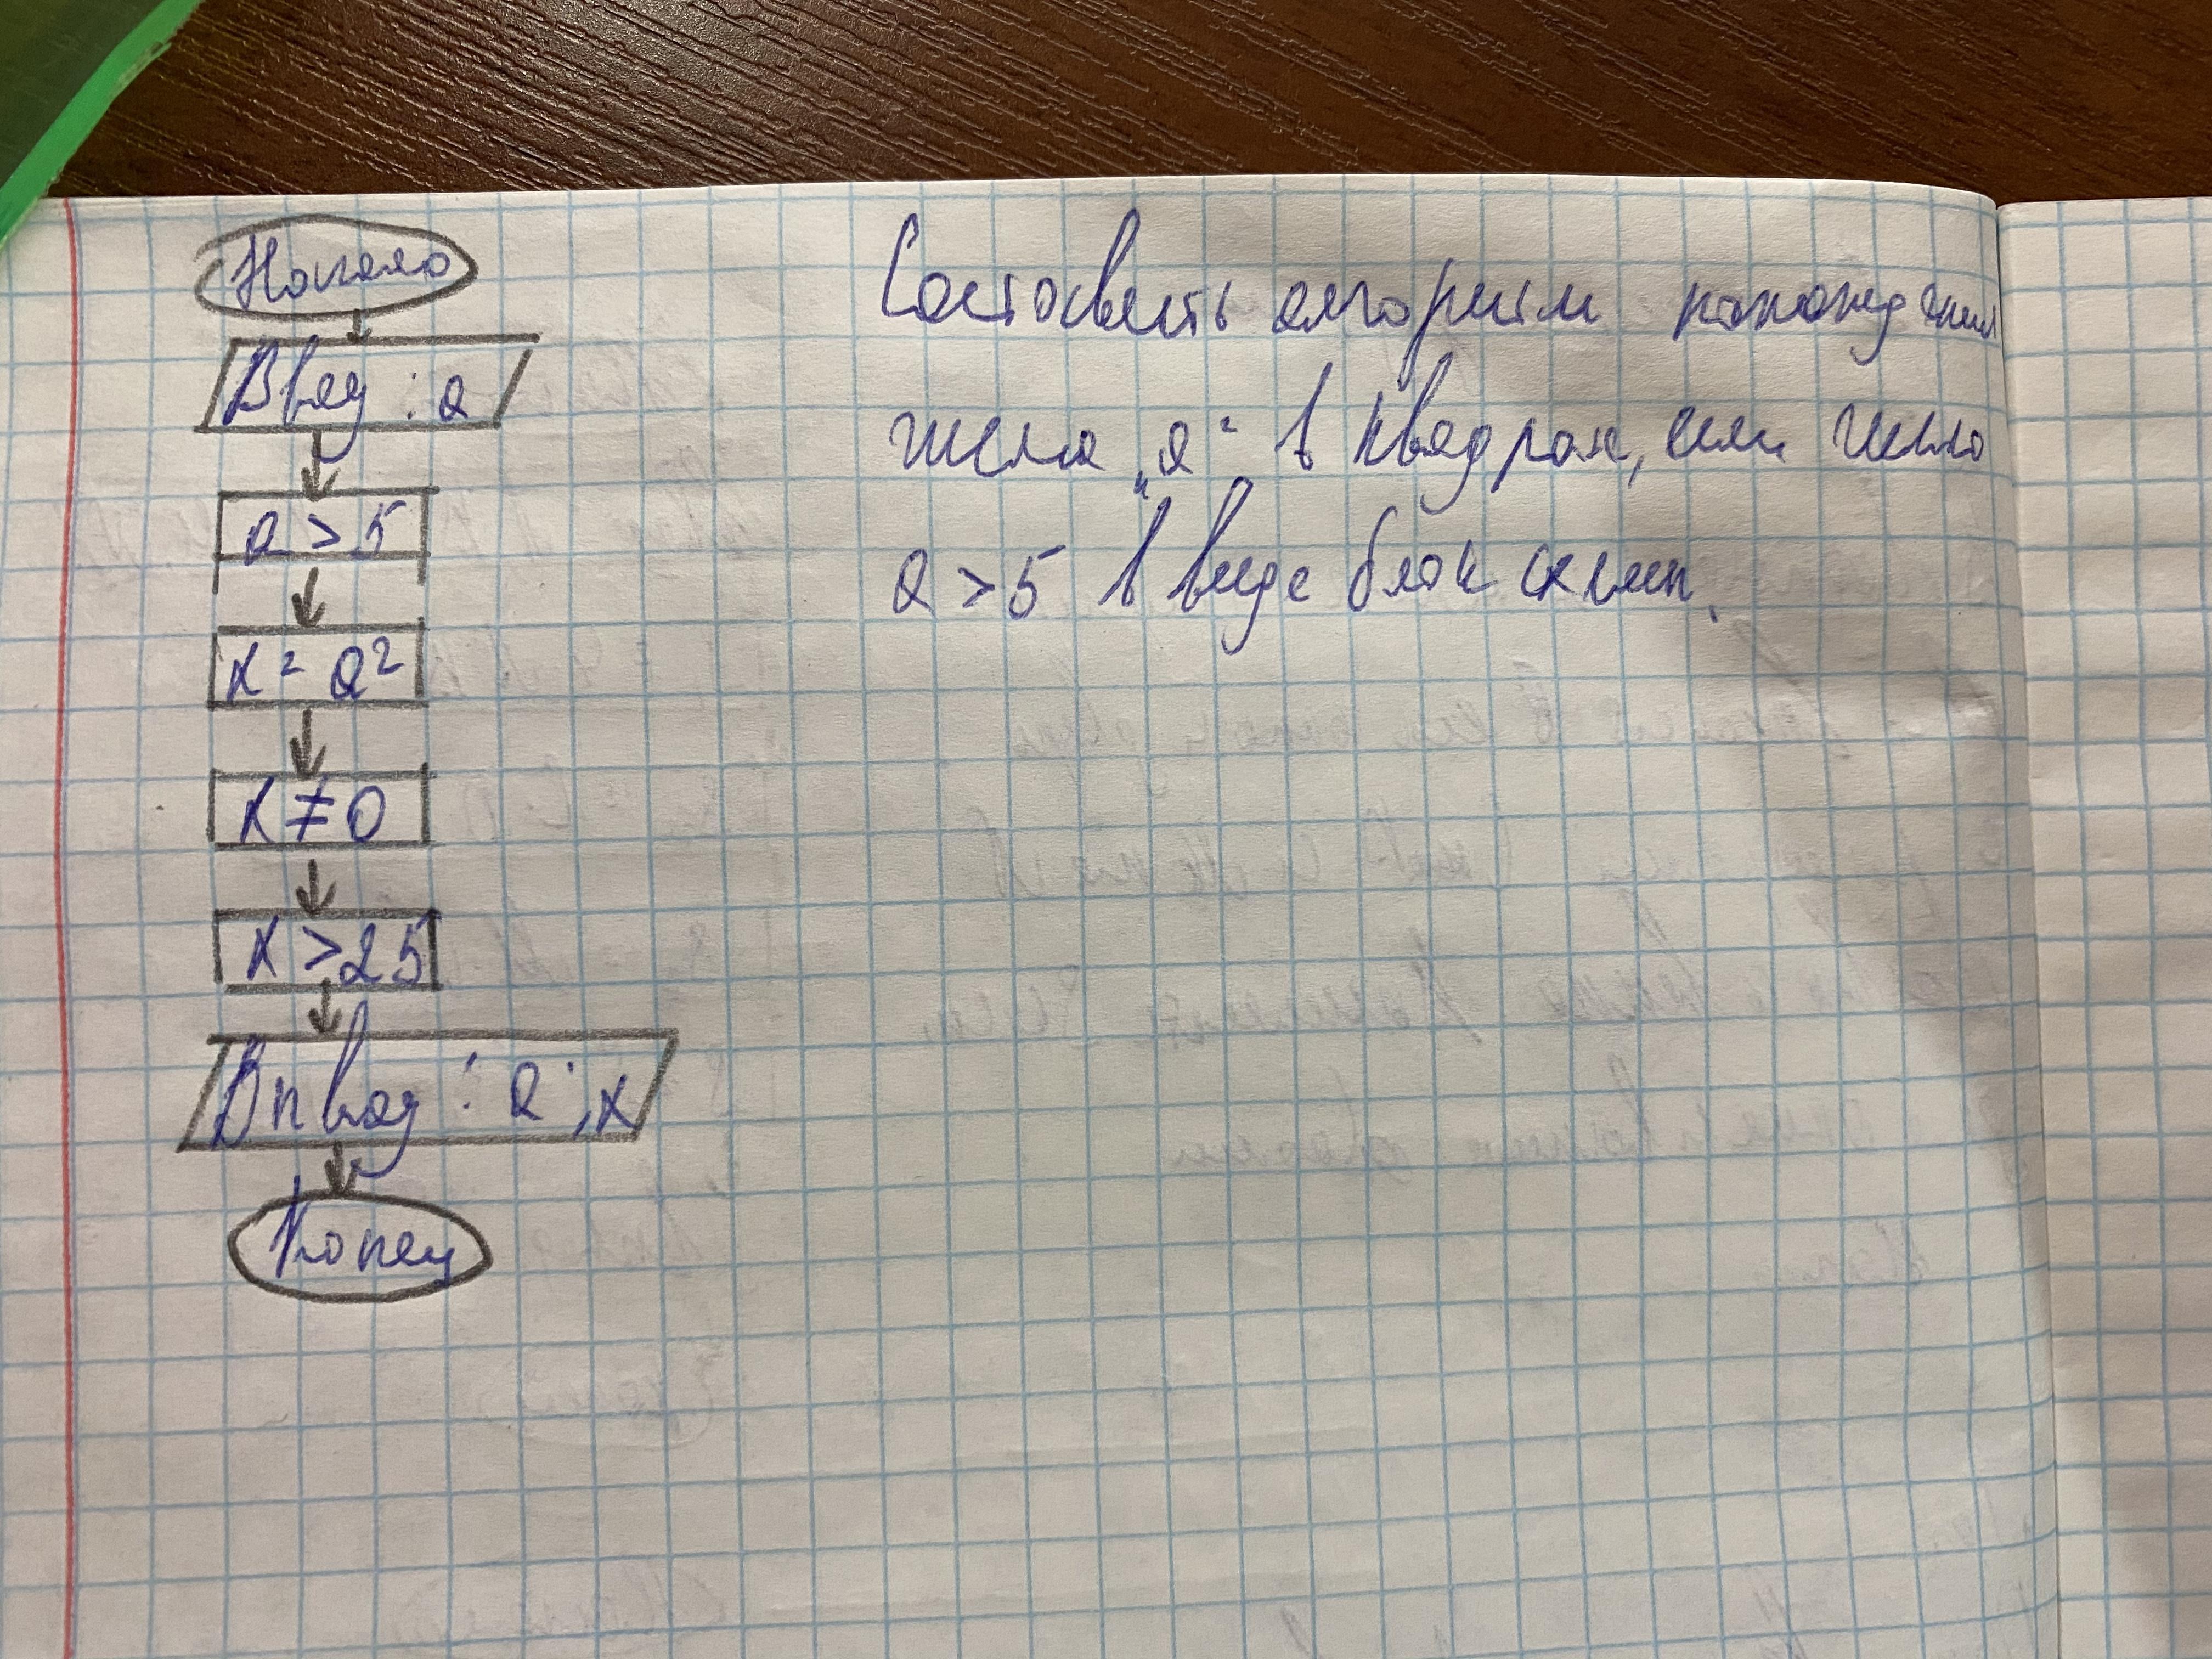 Начало
Ввод : a
a > 5
x = a²
x ≠ 0
x > 25
Вывод : a ; x
Конец
Составить алгоритм нахождения
числа „a“ в квадрат, если число
a > 5 в виде блок схемы.